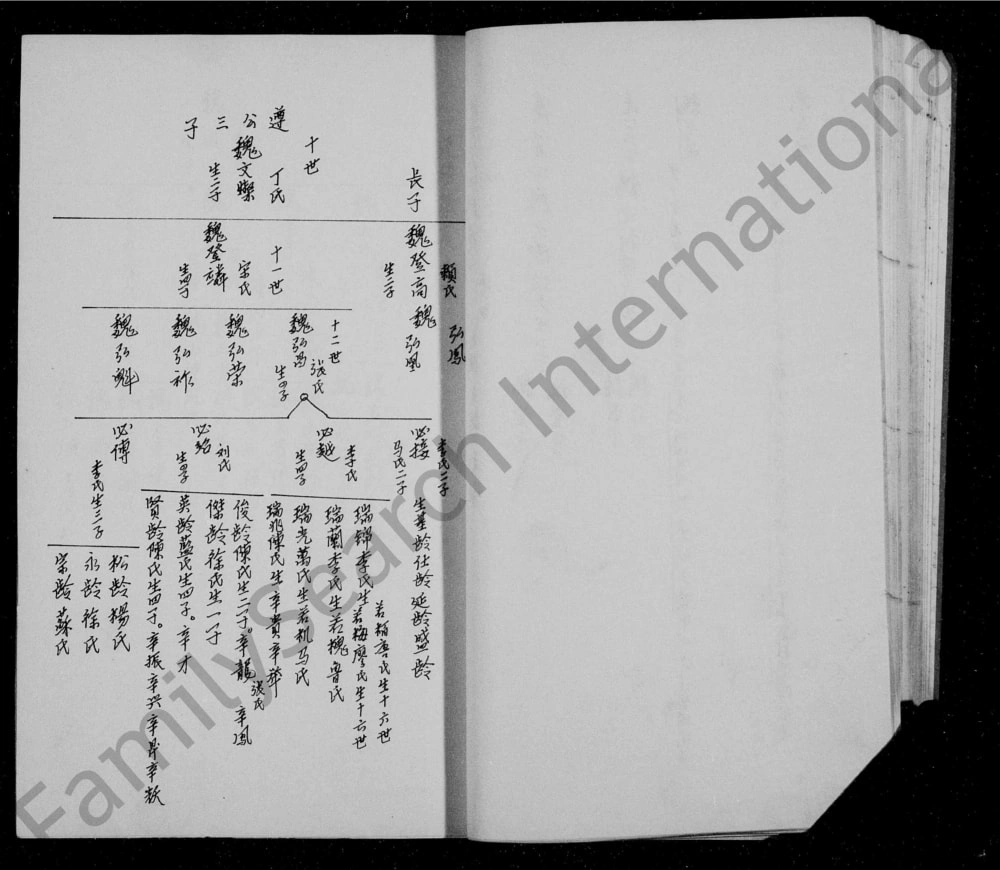 遵公三子
十世
魏文燦
丁氏
生二子
长子
魏登高
賴氏
生二子
十一世
魏登麟
宋氏
生四子
魏弘凰
弘鳳
十二世
魏弘昌
张氏
生四子
魏弘荣
魏弘祚
魏弘魁
必接
李氏二子
马氏二子
生基龄仕龄延龄盛龄
必越
李氏
生四子
瑞錦李氏生若梅廖氏生十六世
若楨唐氏生十六世
瑞蘭李氏生若槐曾氏
瑞光萬氏生若机马氏
瑞兆陳氏生辛贵辛華
必紹
刘氏
生四子
俊龄陳氏生二子。辛龍张氏 辛鳳
傑龄徐氏生一子
英龄藍氏生四子。辛才
賢龄陳氏生四子。辛振辛兴辛昇辛
必傅
李氏生三子
松龄楊氏
永龄徐氏
宗龄蘇氏
FamilySearch International